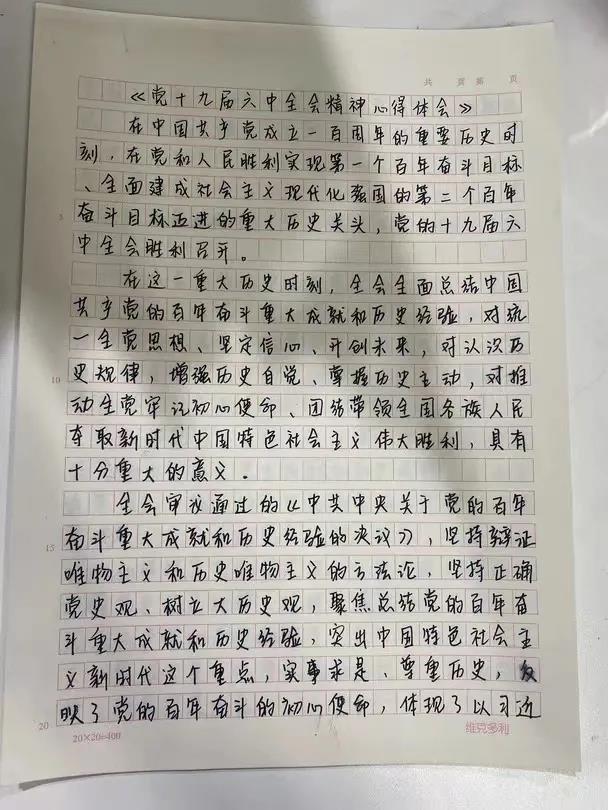 共 页 第 页
《党十九届六中全会精神心得体会》
在中国共产党成立一百周年的重要历史时
刻，在党和人民胜利实现第一个百年奋斗目标
、全面建成社会主义现代化强国的第二个百年
奋斗目标迈进的重大历史关头，党的十九届六
5
中全会胜利召开。
在这一重大历史时刻，全会全面总结中国
共产党的百年奋斗重大成就和历史经验，对统
一全党思想、坚定信心、开创未来，对认识历
10
史规律，增强历史自觉、掌握历史主动，对推
动全党牢记初心使命、团结带领全国各族人民
夺取新时代中国特色社会主义伟大胜利，具有
十分重大的意义。
全会审议通过的《中共中央关于党的百年
15
奋斗重大成就和历史经验的决议》，坚持辩证
唯物主义和历史唯物主义的方法论，坚持正确
党史观、树立大历史观，聚焦总结党的百年奋
斗重大成就和历史经验，突出中国特色社会主
义新时代这个重点，实事求是、尊重历史，反
20
映了党的百年奋斗的初心使命，体现了以习近
20×20=400
维克多利